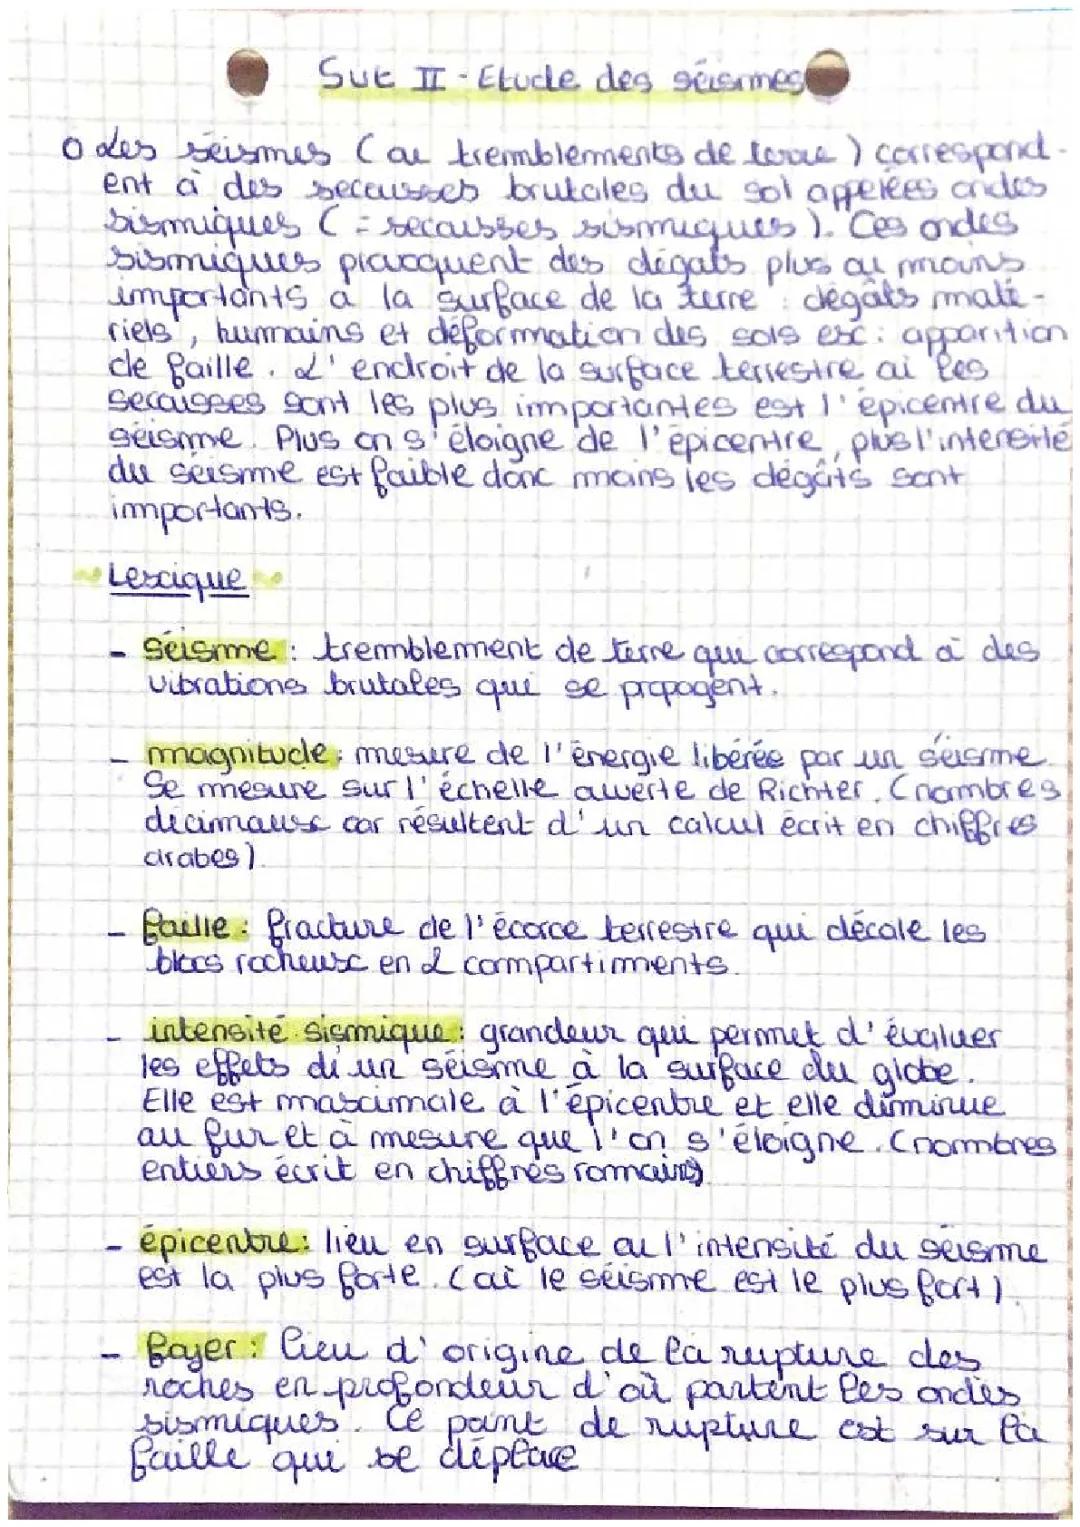 Svt II - Etude des séismes
o Les séismes (ou tremblements de terre) correspond-
ent à des secousses brutales du sol appelées ondes
sismiques (= secousses sismiques). Ces ondes
sismiques provoquent des dégats plus ou moins
importants à la surface de la terre : dégâts maté-
riels, humains et déformation des sols ex: apparition
de faille. L'endroit de la surface terrestre où les
secousses sont les plus importantes est l'épicentre du
séisme. Plus on s'éloigne de l'épicentre, plus l'intensité
du séisme est faible donc moins les dégâts sont
importants.
~ Lexique ~
- séisme : tremblement de terre qui correspond à des
vibrations brutales qui se propagent.
- magnitude : mesure de l'énergie libérée par un séisme.
Se mesure sur l'échelle ouverte de Richter. (nombres
décimaux car résultent d'un calcul écrit en chiffres
arabes)
- faille : fracture de l'écorce terrestre qui décale les
blocs rocheux en 2 compartiments.
- intensité sismique : grandeur qui permet d'évaluer
les effets d'un séisme à la surface du globe.
Elle est maximale à l'épicentre et elle diminue
au fur et à mesure que l'on s'éloigne. (nombres
entiers écrit en chiffres romains)
- épicentre : lieu en surface ou l'intensité du séisme
est la plus forte. (où le séisme est le plus fort).
- foyer : lieu d'origine de la rupture des
roches en profondeur d'où partent les ondes
sismiques. Ce point de rupture est sur la
faille qui se déplace